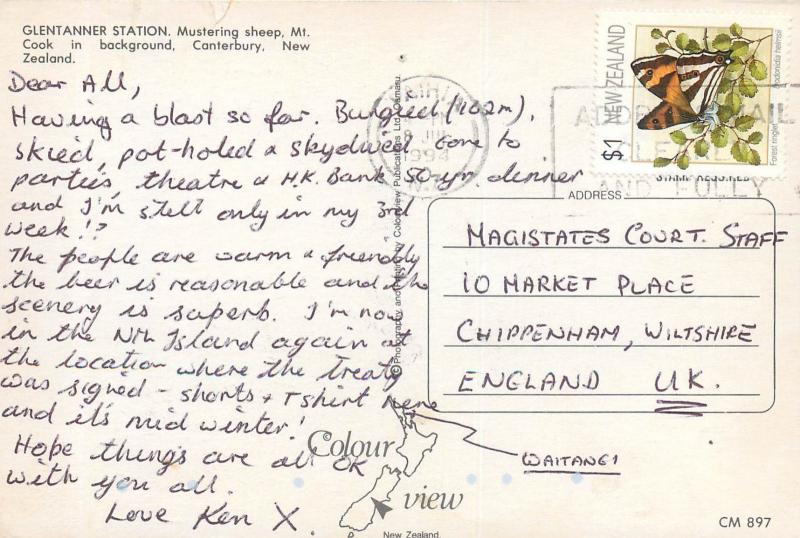 GLENTANNER STATION. Mustering sheep, Mt.
Cook in background, Canterbury, New
Zealand.
Dear All,
Having a blast so far. Bungied (102m),
skied, pot-holed & skydived. Gone to
parties, theatre & H.K. Bank 50 yr. dinner
and I'm still only in my 3rd
week!?
The people are warm & friendly
the beer is reasonable and the
scenery is superb. I'm now
in the Nth Island again at
the location where the treaty
was signed - shorts & T shirt here
and it's mid winter!
Hope things are all OK
with you all.
Love Ken X.
© Photography and Printing by Colourview Publications Ltd, Oamaru.
1994
NEW ZEALAND
$1
Forest ringlet
Dodonidia helmsii
STAMP REQUIRED
AND FOLLY
ADDRESS
MAGISTATES COURT. STAFF
10 MARKET PLACE
CHIPPENHAM, WILTSHIRE
ENGLAND UK.
WAITANGI
Colour
view
New Zealand.
CM 897